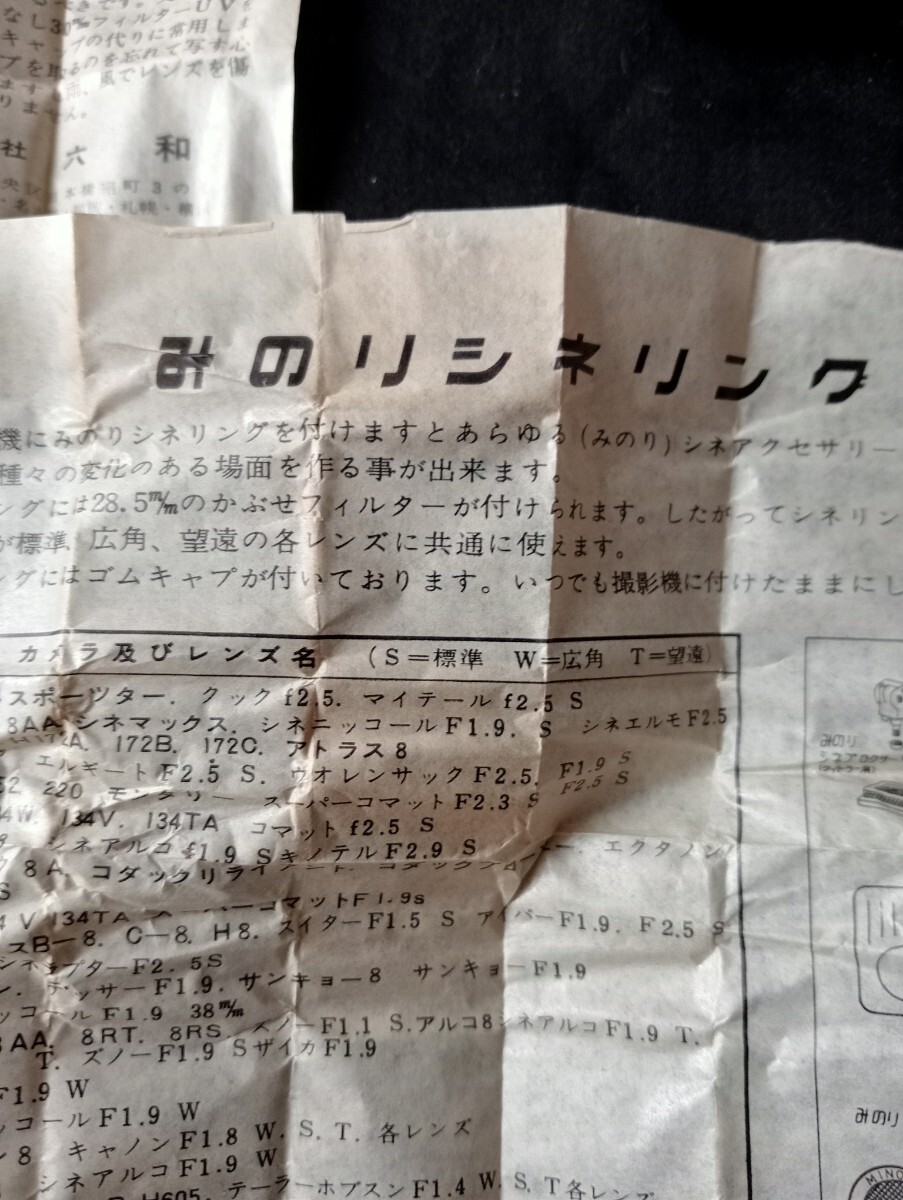 なし30㎜フィルターUVを
キャップの代りに常用しま
プを取るのを忘れて写す心
風でレンズを傷
りません。
社 六 和
町3の
札幌・横
みのりシネリング
機にみのりシネリングを付けますとあらゆる(みのり)シネアクセサリー
種々の変化のある場面を作る事が出来ます。
ングには28.5m/mのかぶせフィルターが付けられます。したがってシネリン
が標準、広角、望遠の各レンズに共通に使えます。
ングにはゴムキャプが付いております。いつでも撮影機に付けたままにし
カメラ及びレンズ名 (S=標準 W=広角 T=望遠)
スポーツター. クックf2.5. マイテールf2.5 S
8AA シネマックス. シネニッコールF1.9. S シネエルモF2.5
172A. 172B. 172C. アトラス8
エルギートF2.5 S. ウオレンサックF2.5. F1.9 S
F2.5 S
220 スーパーコマットF2.3 S
134V. 134TA コマットf2.5 S
シネアルコf1.9 S キノテルF2.9 S
8A. コダックリライアント エクタノン
S
V 134TA コマットF1.9s
スB-8. C-8. H8. スイターF1.5 S アイバーF1.9. F2.5 S
シネラプターF2.5S
ン. テッサーF1.9. サンキョー8 サンキョーF1.9
ッコールF1.9 38m/m
8AA. 8RT. 8RS. ズノーF1.1 S. アルコ8シネアルコF1.9 T.
T. ズノーF1.9 SザイカF1.9
F1.9 W
ッコールF1.9 W
8 キャノンF1.8 W. S. T. 各レンズ
シネアルコF1.9 W
H605. テーラーホブスンF1.4 W. S. T各レンズ
みのり
みのり
MINO